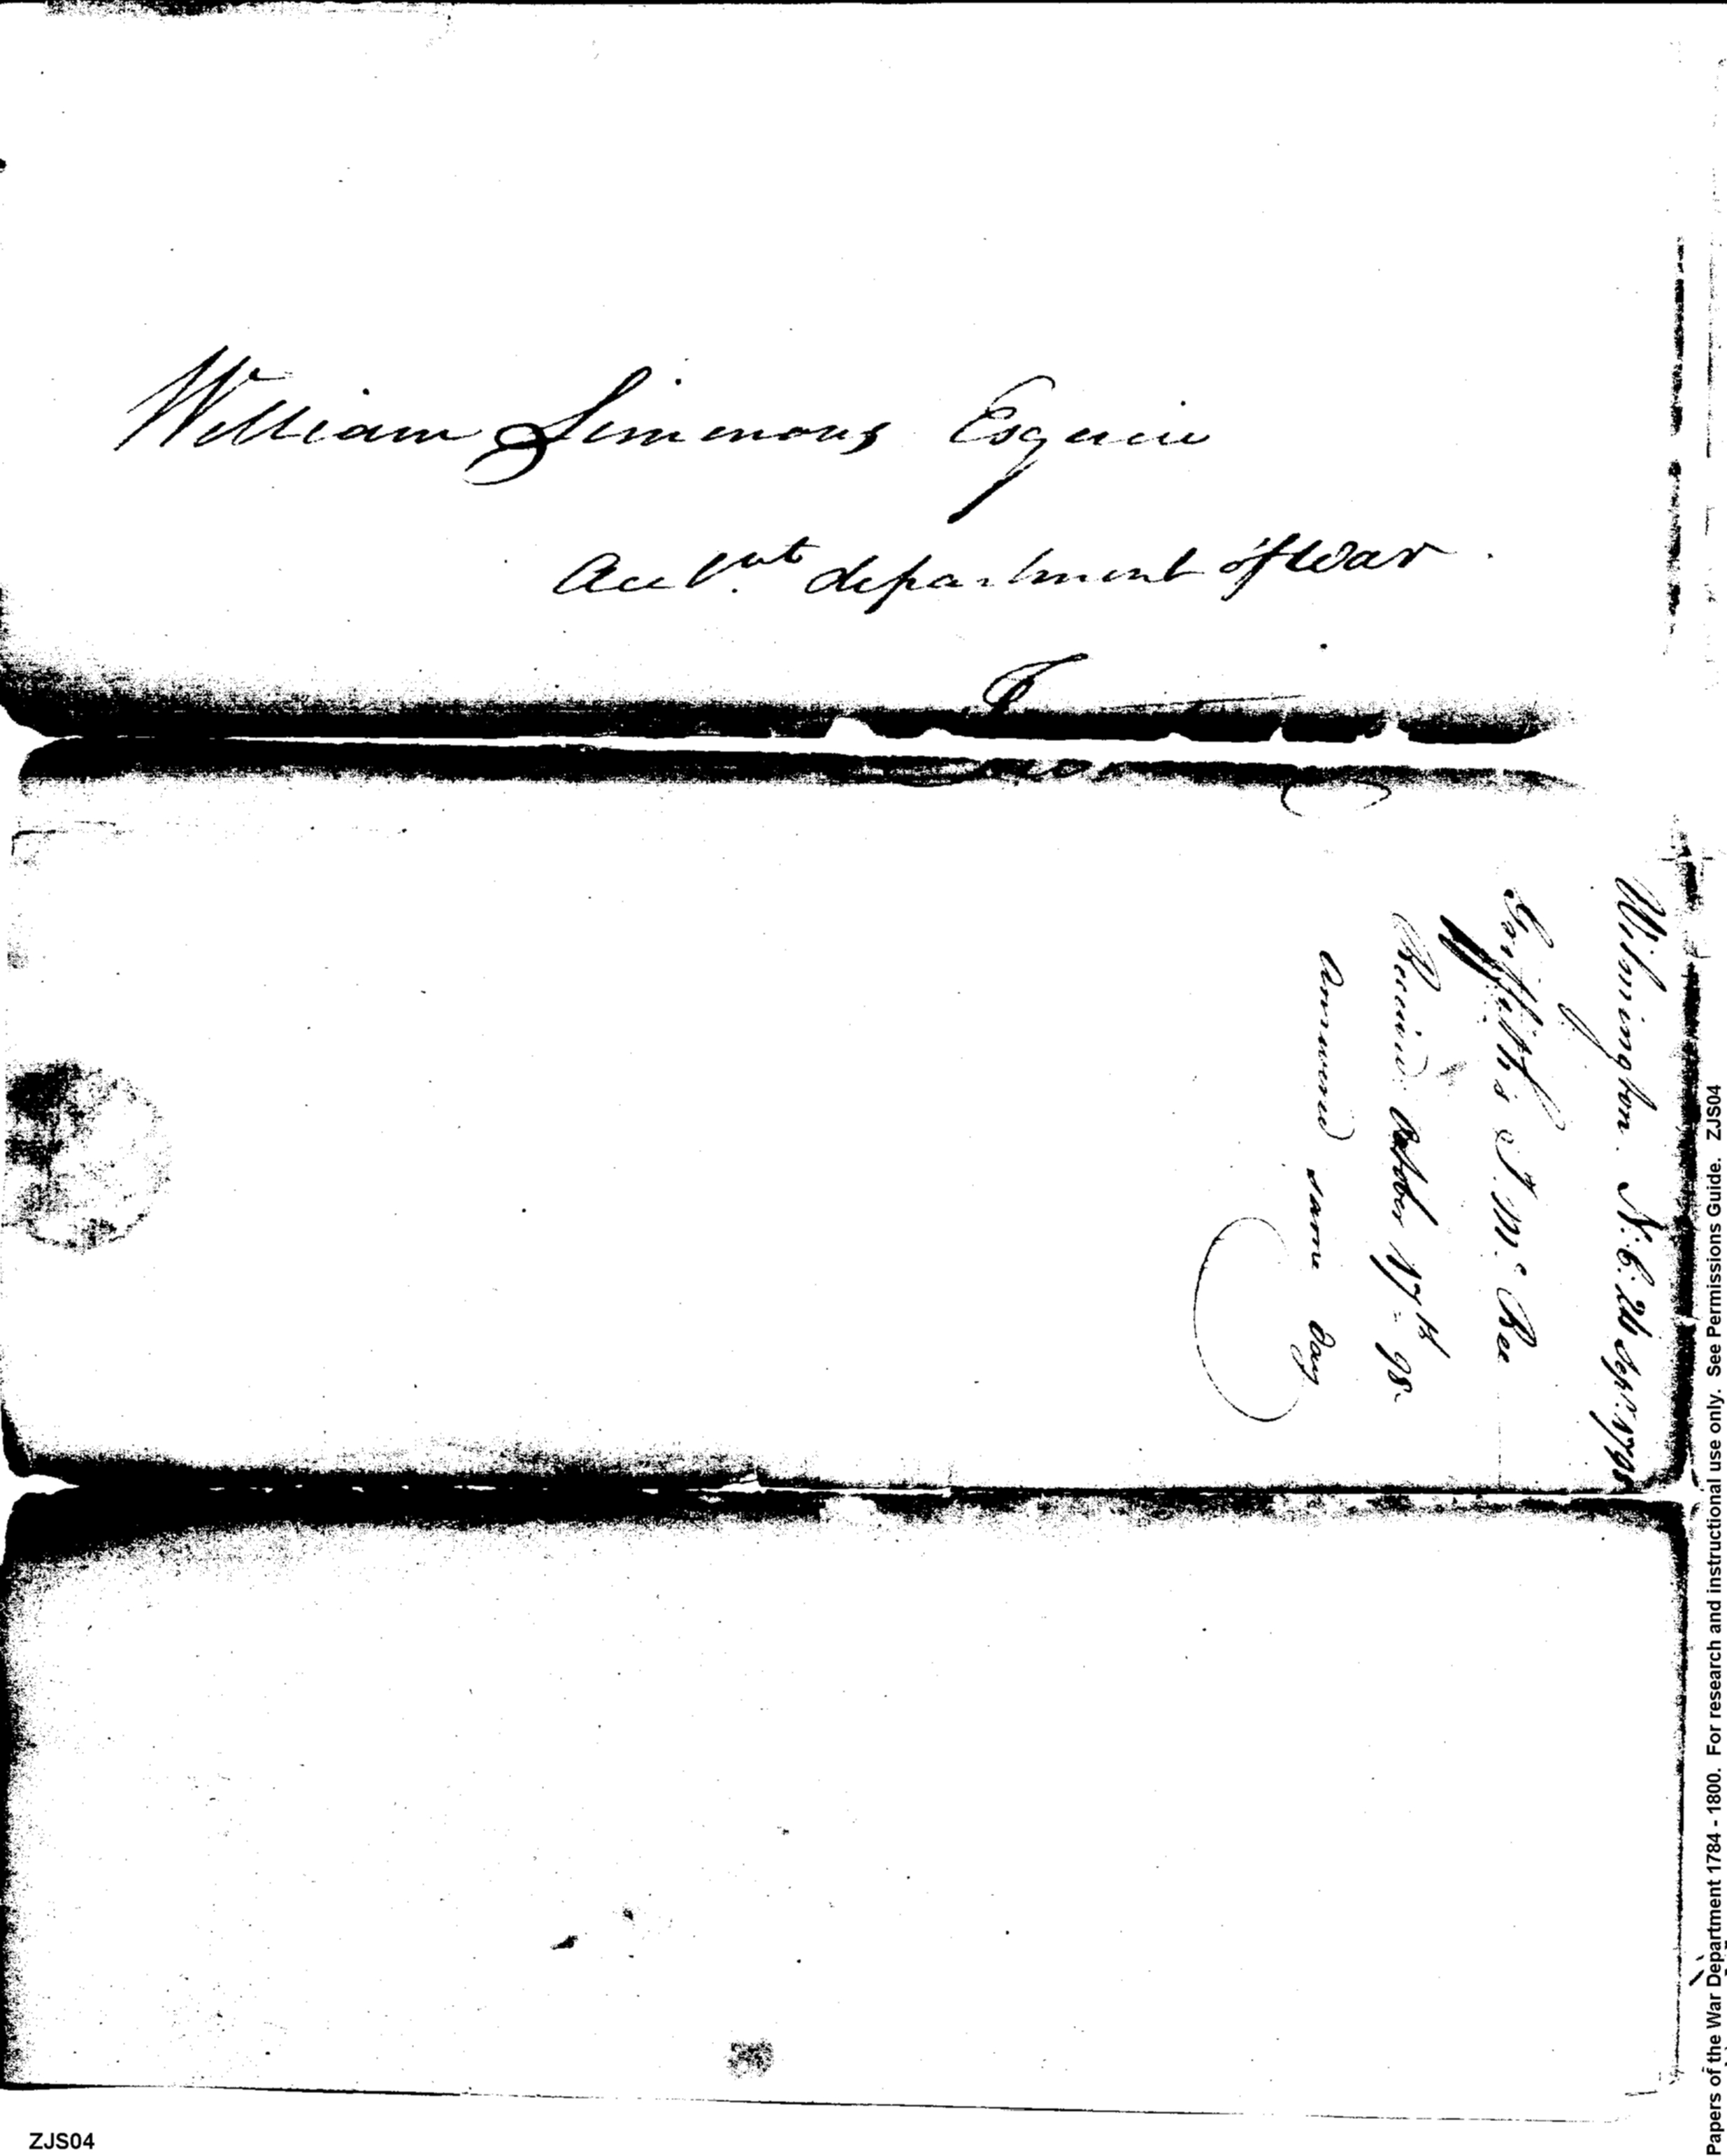 William Simmons Esquire
Acct.ant department of War
Wilmington. N.C. 26 Sept. 1798
Griffith J. McRee
Received October 17th 98
Answered same day
Papers of the War Department 1784 - 1800. For research and instructional use only. See Permissions Guide. ZJS04
ZJS04